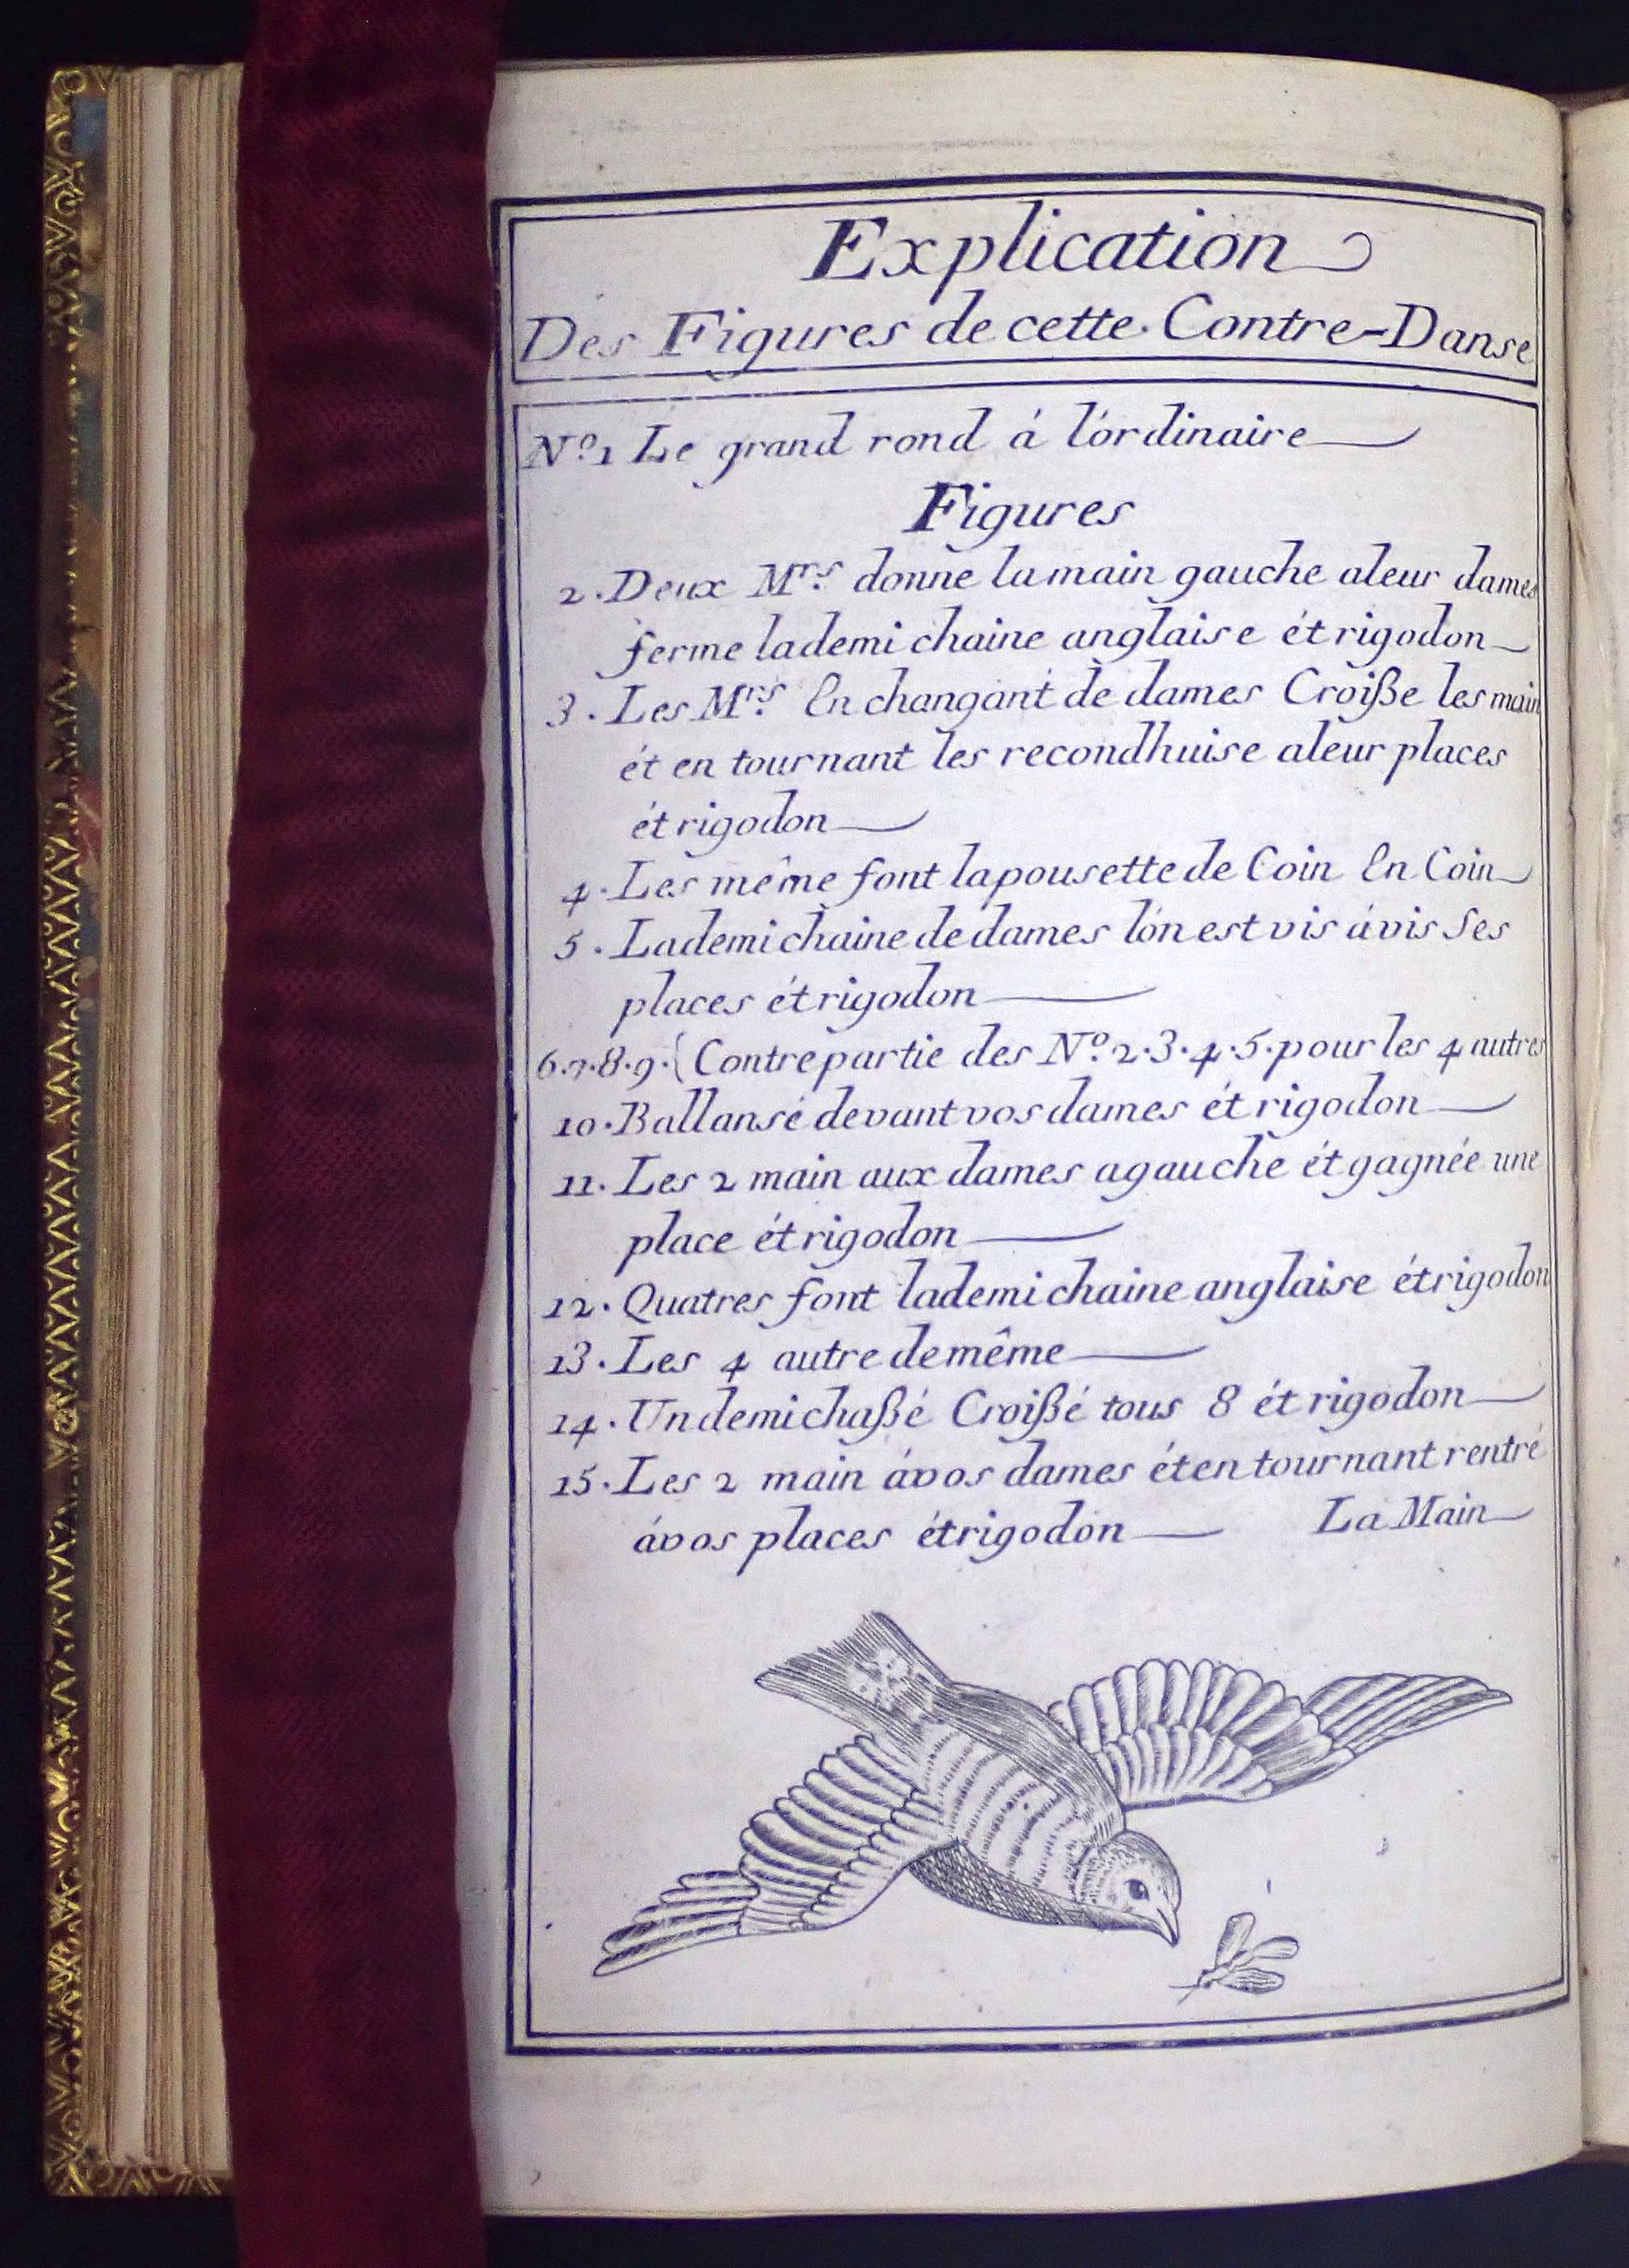 Explication
Des Figures de cette Contre-Danse
No. 1 Le grand rond á l'órdinaire
Figures
2. Deux Mrs. donne la main gauche a leur dames
ferme la demi chaine anglaise ét rigodon
3. Les Mrs. En changant de dames Croiße les main
ét en tournant les recondhuise a leur places
ét rigodon
4. Les même font la pousette de Coin En Coin
5. La demi chaine de dames l'ón est vis á vis Ses
places ét rigodon
6.7.8.9.{ Contre partie des No. 2.3.4.5. pour les 4 autres
10. Ballansé devant vos dames ét rigodon
11. Les 2 main aux dames a gauche ét gagnée une
place ét rigodon
12. Quatres font la demi chaine anglaise ét rigodon
13. Les 4 autre de même
14. Un demi chaßé Croißé tous 8 ét rigodon
15. Les 2 main á vos dames ét en tournant rentré
á vos places ét rigodon La Main